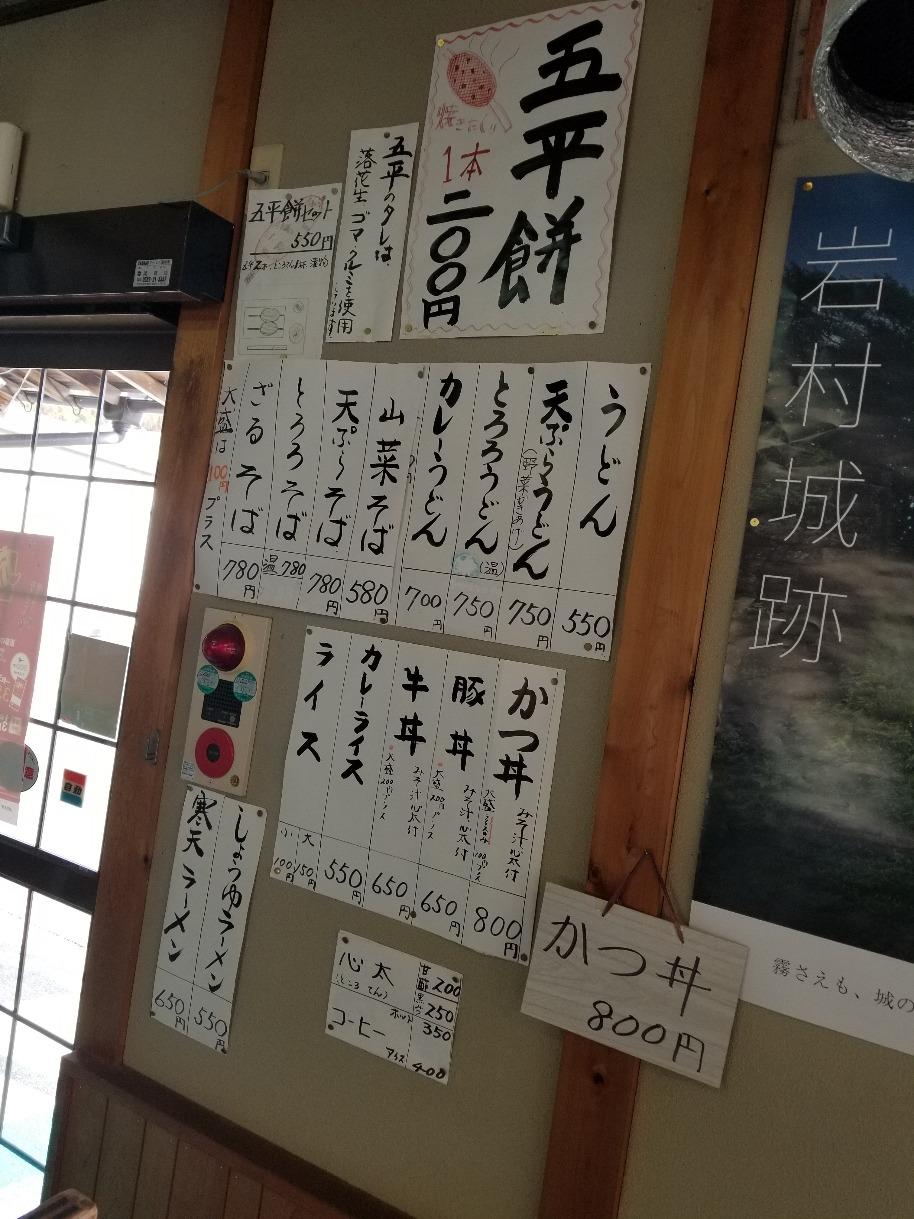 五平餅
焼きたて
1本
二〇〇円
五平のタレは、
落花生 ゴマ クルミを使用
五平餅セット
550円
うどん 550円
天ぷらうどん (野菜かきあげ) 750円
とろろうどん (温) 750円
カレーうどん 700円
山菜そば 580円
天ぷらそば 780円
とろろそば 温 780
ざるそば 780円
大盛は100円プラス
かつ丼 みそ汁 心太付 800円
豚丼 大盛200円プラス みそ汁 心太付 650円
牛丼 大盛200円プラス みそ汁 心太付 650円
カレーライス 550円
ライス 大 150円 小 100円
しょうゆラーメン 550円
寒天ラーメン 650円
心太 200
(ところてん) 黒 250
コーヒー ホット 350
アイス 400
かつ丼
800円
岩村城跡
霧さえも、城の
自動